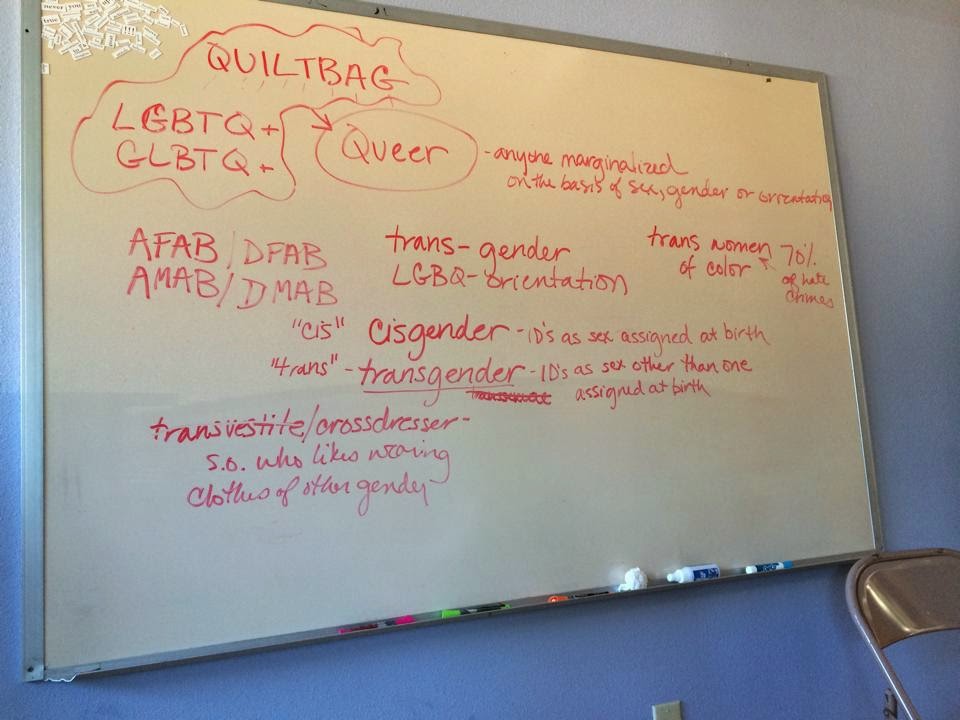 never you
true
QUILTBAG
LGBTQ+
GLBTQ+
Queer
-anyone marginalized
on the basis of sex, gender or orientation
AFAB/DFAB
AMAB/DMAB
trans-gender
LGBQ-orientation
trans women
of color
70%
of hate
crimes
"cis" cisgender - ID's as sex assigned at birth
"trans" - transgender - ID's as sex other than one
assigned at birth
transvestite/crossdresser-
s.o. who likes wearing
clothes of other gender